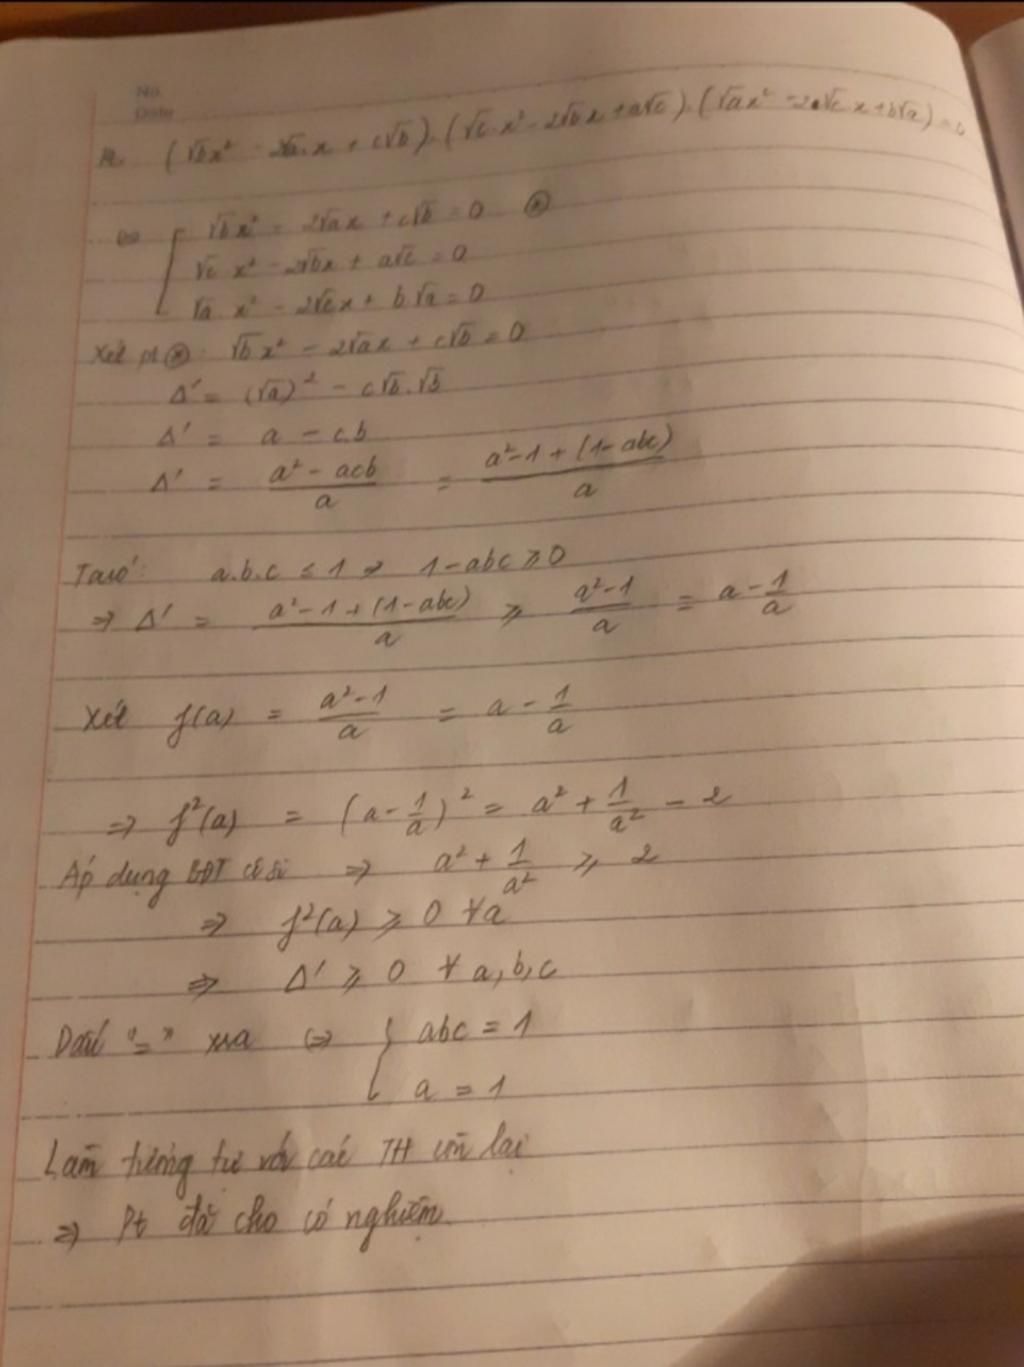 No.
Date
(√b x² - 2√a.x + c√b).(√c.x² - 2√b x + a√c).(√a x² - 2√c x + b√a) = 0
⇔ [ √b x² - 2√a x + c√b = 0 ⊛
√c x² - 2√b x + a√c = 0
√a x² - 2√c x + b√a = 0
Xét pt ⊛: √b x² - 2√a x + c√b = 0
Δ' = (√a)² - c√b.√b
Δ' = a - c.b
Δ' = (a² - acb)/a = (a² - 1 + (1 - abc))/a
Ta có: a.b.c ≤ 1 ⇒ 1 - abc ≥ 0
⇒ Δ' = (a² - 1 + (1 - abc))/a ≥ (a² - 1)/a = a - 1/a
Xét f(a) = (a² - 1)/a = a - 1/a
⇒ f²(a) = (a - 1/a)² = a² + 1/a² - 2
Áp dụng BĐT cô si ⇒ a² + 1/a² ≥ 2
⇒ f²(a) ≥ 0 ∀a
⇒ Δ' ≥ 0 ∀ a, b, c
Dấu "=" xra ⇔ { abc = 1
a = 1
Làm tương tự với các TH còn lại
⇒ Pt đã cho có nghiệm.